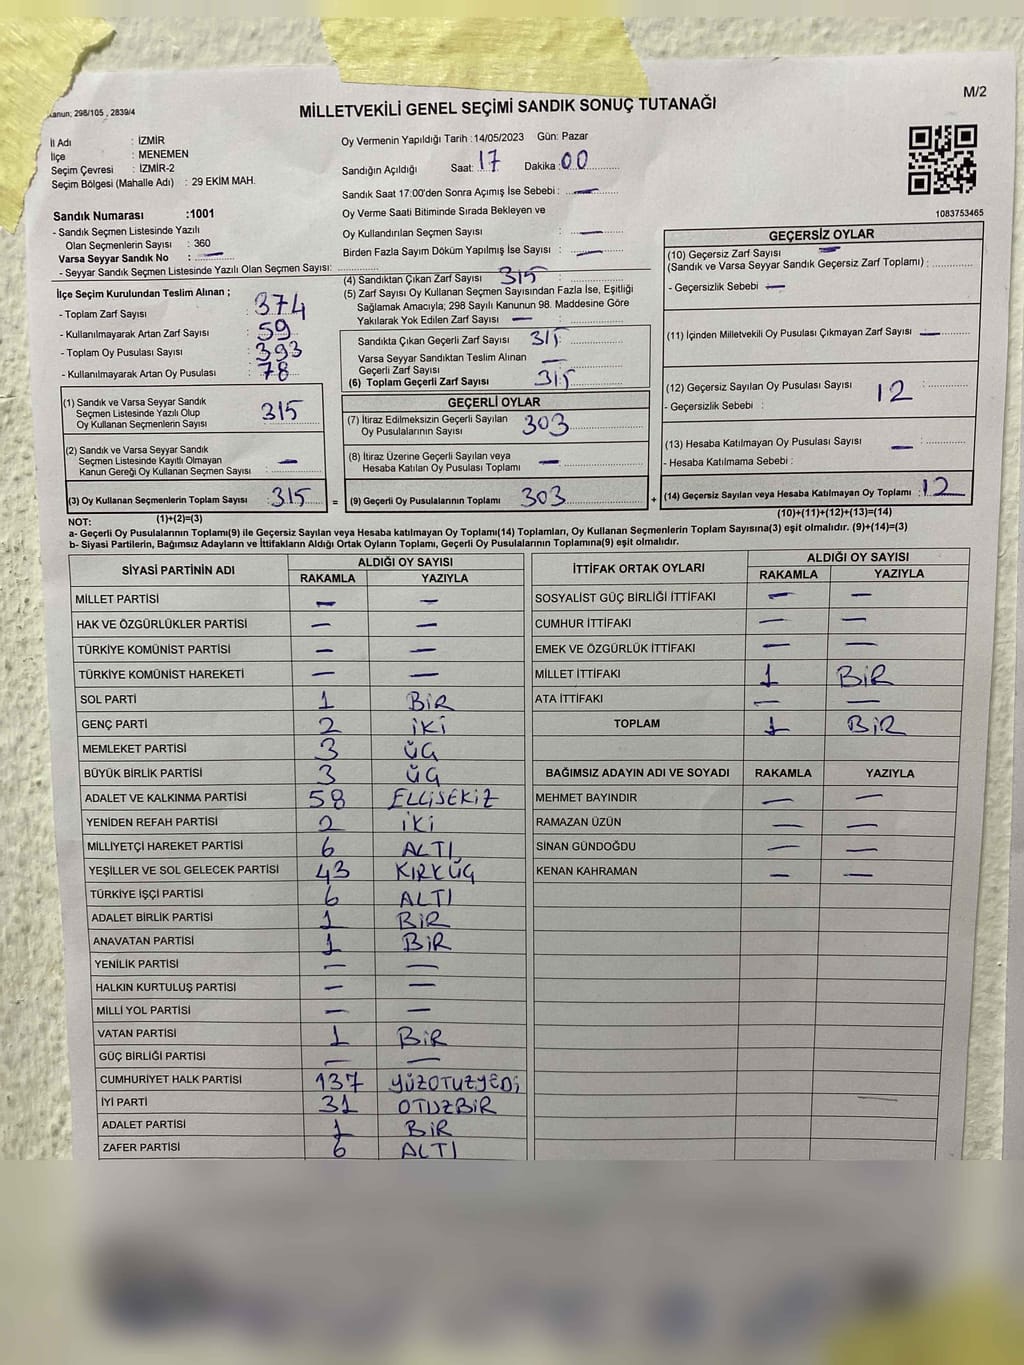 M/2
Kanun; 298/105 , 2839/4
MİLLETVEKİLİ GENEL SEÇİMİ SANDIK SONUÇ TUTANAĞI
İl Adı : İZMİR
İlçe : MENEMEN
Seçim Çevresi : İZMİR-2
Seçim Bölgesi (Mahalle Adı) : 29 EKİM MAH.
Oy Vermenin Yapıldığı Tarih :14/05/2023 Gün: Pazar
Sandığın Açıldığı Saat: 17 Dakika: 00
Sandık Saat 17.00'den Sonra Açımış İse Sebebi : —
Oy Verme Saati Bitiminde Sırada Bekleyen ve
Oy Kullandırılan Seçmen Sayısı : —
Birden Fazla Sayım Döküm Yapılmış İse Sayısı : —
1083753465
Sandık Numarası :1001
- Sandık Seçmen Listesinde Yazılı
Olan Seçmenlerin Sayısı : 360
Varsa Seyyar Sandık No : —
- Seyyar Sandık Seçmen Listesinde Yazılı Olan Seçmen Sayısı:
İlçe Seçim Kurulundan Teslim Alınan ;
- Toplam Zarf Sayısı : 374
- Kullanılmayarak Artan Zarf Sayısı : 59
- Toplam Oy Pusulası Sayısı : 393
- Kullanılmayarak Artan Oy Pusulası : 78
(1) Sandık ve Varsa Seyyar Sandık
Seçmen Listesinde Yazılı Olup
Oy Kullanan Seçmenlerin Sayısı 315
(2) Sandık ve Varsa Seyyar Sandık
Seçmen Listesinde Kayıtlı Olmayan
Kanun Gereği Oy Kullanan Seçmen Sayısı : —
(3) Oy Kullanan Seçmenlerin Toplam Sayısı : 315 =
(1)+(2)=(3)
(4) Sandıktan Çıkan Zarf Sayısı 315
(5) Zarf Sayısı Oy Kullanan Seçmen Sayısından Fazla İse, Eşitliği
Sağlamak Amacıyla; 298 Sayılı Kanunun 98. Maddesine Göre
Yakılarak Yok Edilen Zarf Sayısı —
Sandıkta Çıkan Geçerli Zarf Sayısı 315
Varsa Seyyar Sandıktan Teslim Alınan
Geçerli Zarf Sayısı : —
(6) Toplam Geçerli Zarf Sayısı 315
GEÇERLİ OYLAR
(7) İtiraz Edilmeksizin Geçerli Sayılan
Oy Pusulalarının Sayısı 303
(8) İtiraz Üzerine Geçerli Sayılan veya
Hesaba Katılan Oy Pusulası Toplamı —
(9) Geçerli Oy Pusulalarının Toplamı 303 +
GEÇERSİZ OYLAR
(10) Geçersiz Zarf Sayısı —
(Sandık ve Varsa Seyyar Sandık Geçersiz Zarf Toplamı) :
- Geçersizlik Sebebi —
(11) İçinden Milletvekili Oy Pusulası Çıkmayan Zarf Sayısı —
(12) Geçersiz Sayılan Oy Pusulası Sayısı 12
- Geçersizlik Sebebi :
(13) Hesaba Katılmayan Oy Pusulası Sayısı —
- Hesaba Katılmama Sebebi :
(14) Geçersiz Sayılan veya Hesaba Katılmayan Oy Toplamı : 12
(10)+(11)+(12)+(13)=(14)
NOT:
a- Geçerli Oy Pusulalarının Toplamı(9) ile Geçersiz Sayılan veya Hesaba katılmayan Oy Toplamı(14) Toplamları, Oy Kullanan Seçmenlerin Toplam Sayısına(3) eşit olmalıdır. (9)+(14)=(3)
b- Siyasi Partilerin, Bağımsız Adayların ve İttifakların Aldığı Ortak Oyların Toplamı, Geçerli Oy Pusulalarının Toplamına(9) eşit olmalıdır.
SİYASİ PARTİNİN ADI ALDIĞI OY SAYISI
RAKAMLA YAZIYLA
MİLLET PARTİSİ — —
HAK VE ÖZGÜRLÜKLER PARTİSİ — —
TÜRKİYE KOMÜNİST PARTİSİ — —
TÜRKİYE KOMÜNİST HAREKETİ — —
SOL PARTİ 1 BİR
GENÇ PARTİ 2 İKİ
MEMLEKET PARTİSİ 3 ÜÇ
BÜYÜK BİRLİK PARTİSİ 3 ÜÇ
ADALET VE KALKINMA PARTİSİ 58 ELLİSEKİZ
YENİDEN REFAH PARTİSİ 2 İKİ
MİLLİYETÇİ HAREKET PARTİSİ 6 ALTI
YEŞİLLER VE SOL GELECEK PARTİSİ 43 KIRKÜÇ
TÜRKİYE İŞÇİ PARTİSİ 6 ALTI
ADALET BİRLİK PARTİSİ 1 BİR
ANAVATAN PARTİSİ 1 BİR
YENİLİK PARTİSİ — —
HALKIN KURTULUŞ PARTİSİ — —
MİLLİ YOL PARTİSİ — —
VATAN PARTİSİ 1 BİR
GÜÇ BİRLİĞİ PARTİSİ — —
CUMHURİYET HALK PARTİSİ 137 YÜZOTUZYEDİ
İYİ PARTİ 31 OTUZBİR
ADALET PARTİSİ 1 BİR
ZAFER PARTİSİ 6 ALTI
İTTİFAK ORTAK OYLARI ALDIĞI OY SAYISI
RAKAMLA YAZIYLA
SOSYALİST GÜÇ BİRLİĞİ İTTİFAKI — —
CUMHUR İTTİFAKI — —
EMEK VE ÖZGÜRLÜK İTTİFAKI — —
MİLLET İTTİFAKI 1 BİR
ATA İTTİFAKI — —
TOPLAM 1 BİR
BAĞIMSIZ ADAYIN ADI VE SOYADI RAKAMLA YAZIYLA
MEHMET BAYINDIR — —
RAMAZAN ÜZÜN — —
SİNAN GÜNDOĞDU — —
KENAN KAHRAMAN — —